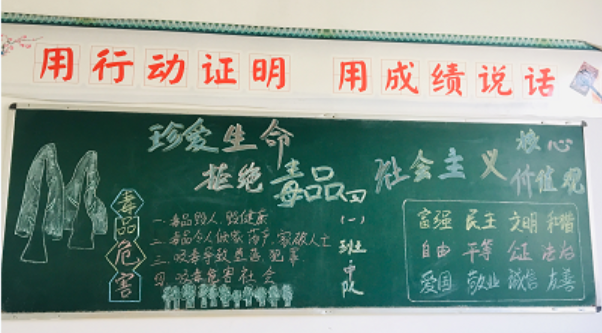 用行动证明 用成绩说话
珍爱生命
拒绝毒品
四(一)班中队
毒品危害
一.毒品毁人、毁健康
二.毒品令人倾家荡产、家破人亡
三.吸毒导致
四 吸毒危害社会
社会主义核心价值观
富强 民主 文明 和谐
自由 平等 公正 法治
爱国 敬业 诚信 友善